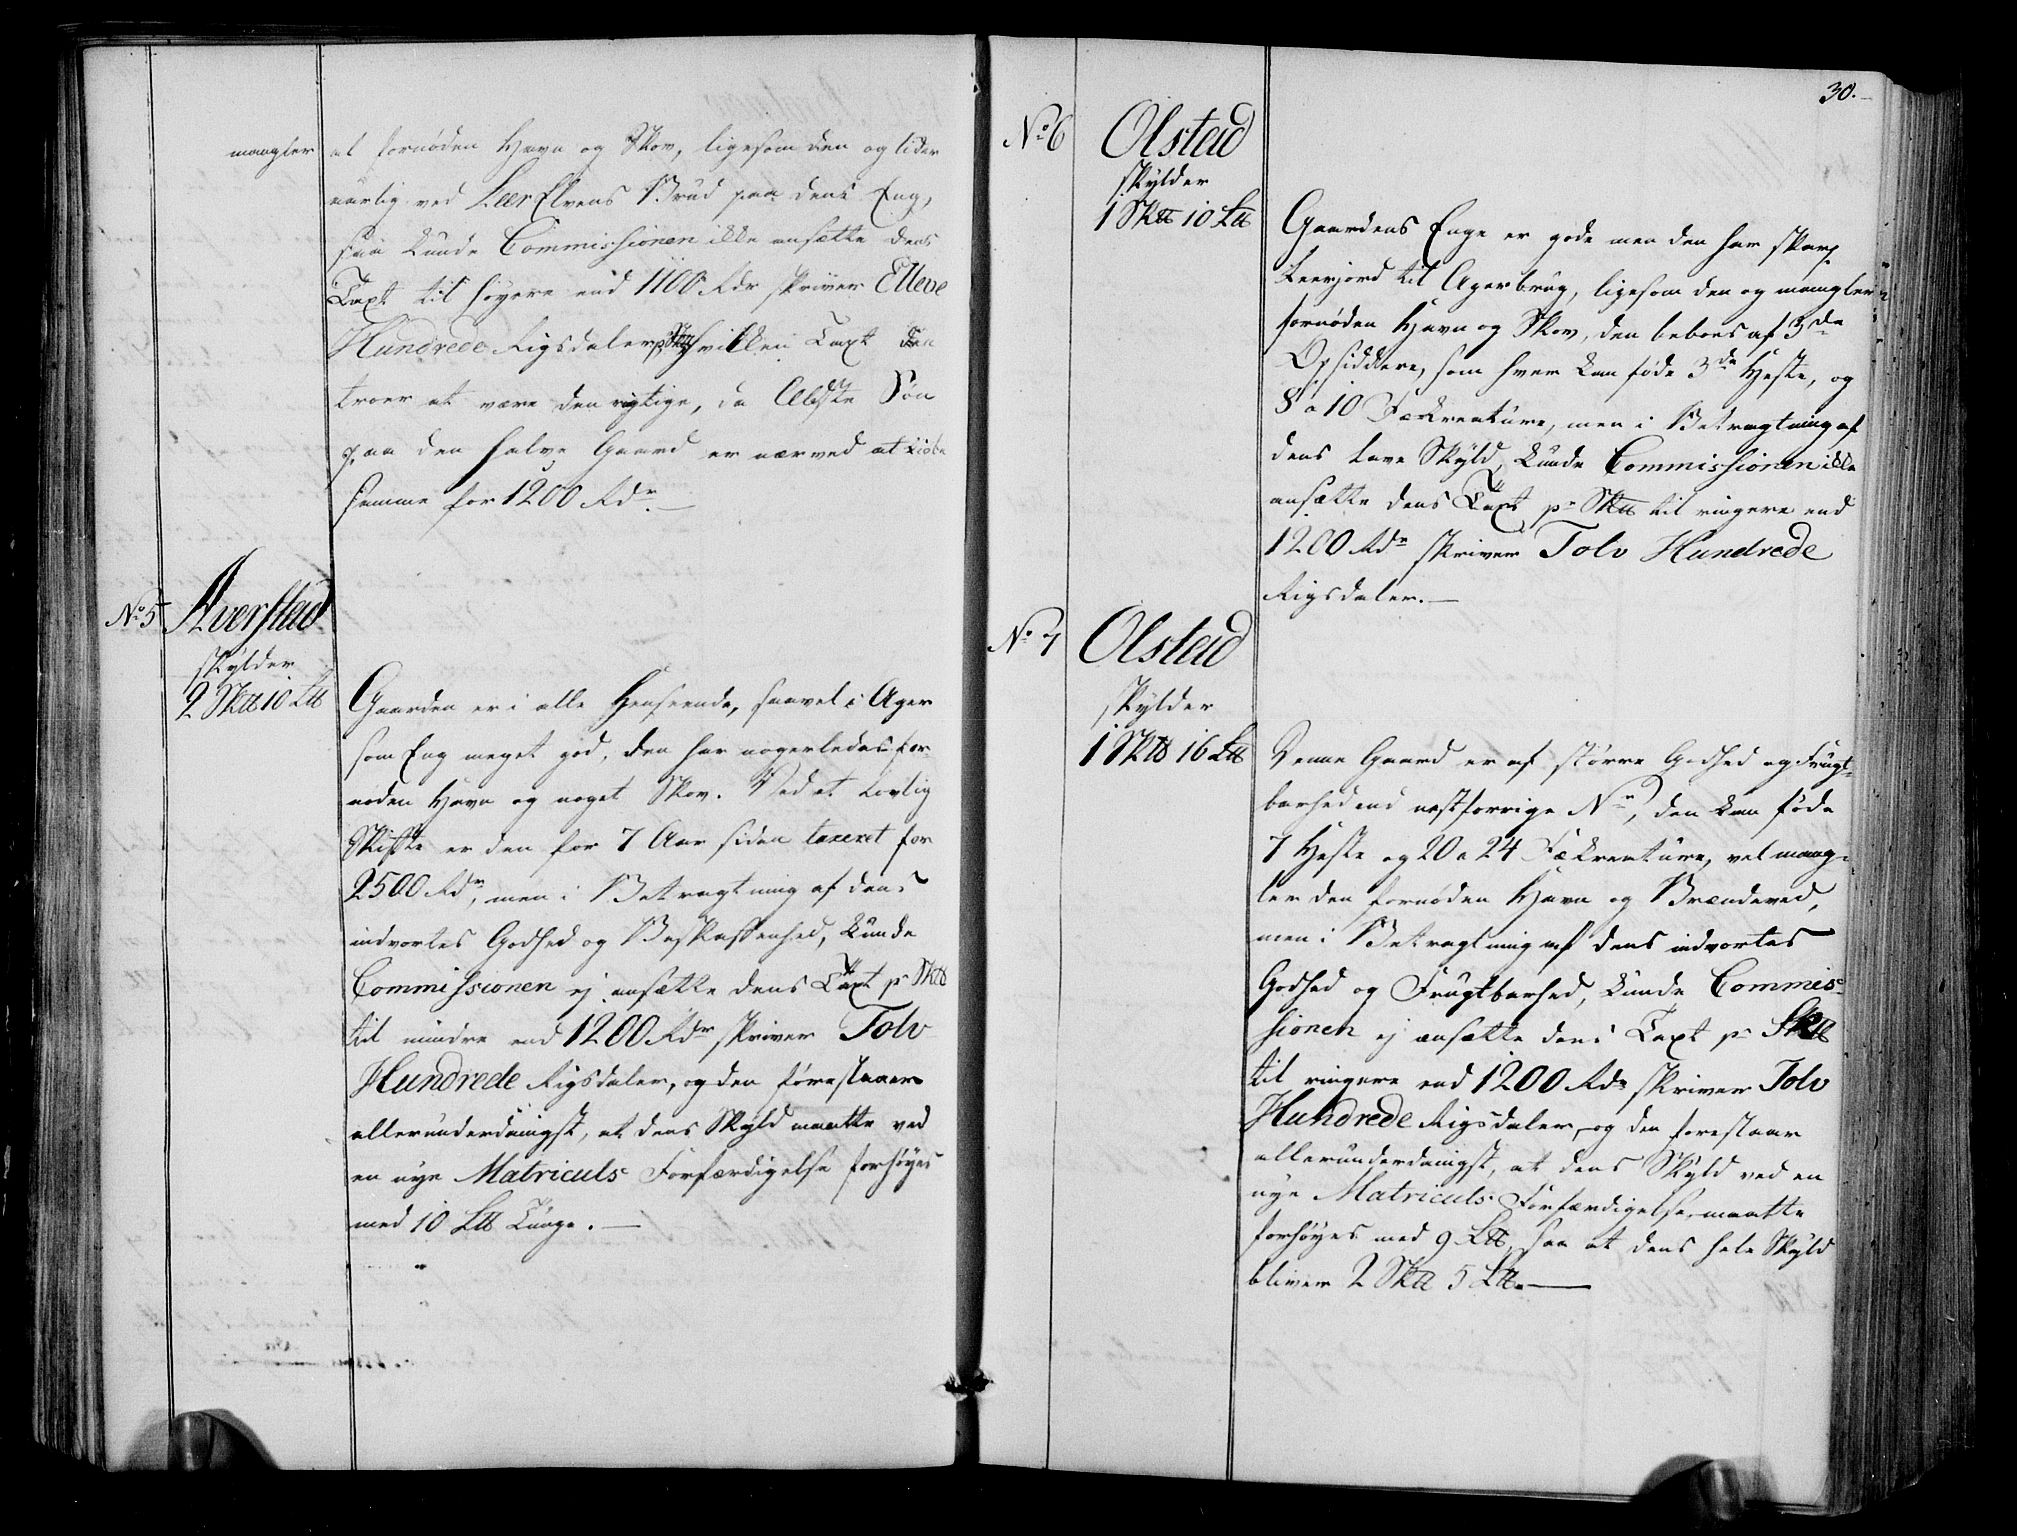 mangler at fornøden Havn og Skov, ligesom den og lider
aarlig ved Leer Elvens Brud paa dens Eng,
saa kunde Commissionen ikke ansætte dens
Taxt til høyere end 1100 Rdr skriver Elleve
Hundrede Rigsdaler pr Sk℔ hvilken Taxt den
troer at være den rigtige, da Ældste Søn
paa den halve Gaard er nærved at kiøbe
samme for 1200 Rdr.—
No 5 Averstad
skylder
2 Sk℔ 10 L℔
Gaarden er i alle Henseende, saavel i Ager
som Eng meget god, den har nogerledes for-
nøden Havn og noget Skov. Ved et lovlig
Skifte er den for 7 Aar siden taxeret for
2500 Rdr, men i Betragtning af dens
indvortes Godhed og Beskaffenhed, kunde
Commissionen ej ansætte dens Taxt pr Sk℔
til mindre end 1200 Rdr skriver Tolv
Hundrede Rigsdaler, og den forestaaer
allerunderdanigst, at dens Skyld maatte ved
en nye Matriculs Forfærdigelse forhøyes
med 10 L℔ Tunge.—
30.
No 6 Olstad
skylder
1 Sk℔ 10 L℔
Gaardens Enge er gode men den har skarp
Leerjord til Agerbrug, ligesom den og mangler
fornøden Havn og Skov, den beboes af 3de
Opsiddere, som hver kan føde 3de Heste, og
8 a 10 Fækreature, men i Betragtning af
dens lave Skyld, kunde Commissionen ikke
ansætte dens Taxt pr Sk℔ til ringere end
1200 Rdr skriver Tolv Hundrede
Rigsdaler.—
No 7 Olstad
skylder
1 Sk℔ 16 L℔
Denne Gaard er af større Godhed og Frugt-
barhed end nestforrige Nr, den kan føde
7 Heste og 20 a 24 Fækreature, vel mang-
ler den fornøden Havn og Brændeved,
men i Betragtning af dens indvortes
Godhed og Frugtbarhed, kunde Commis-
sionen ej ansætte dens Taxt pr Sk℔
til ringere end 1200 Rdr skriver Tolv
Hundrede Rigsdaler, og den forestaar
allerunderdanigst, at dens Skyld ved en
nye Matriculs Forfærdigelse, maatte
forhøyes med 9 L℔, saa at dens hele Skyld
bliver 2 Sk℔ 5 L℔.—